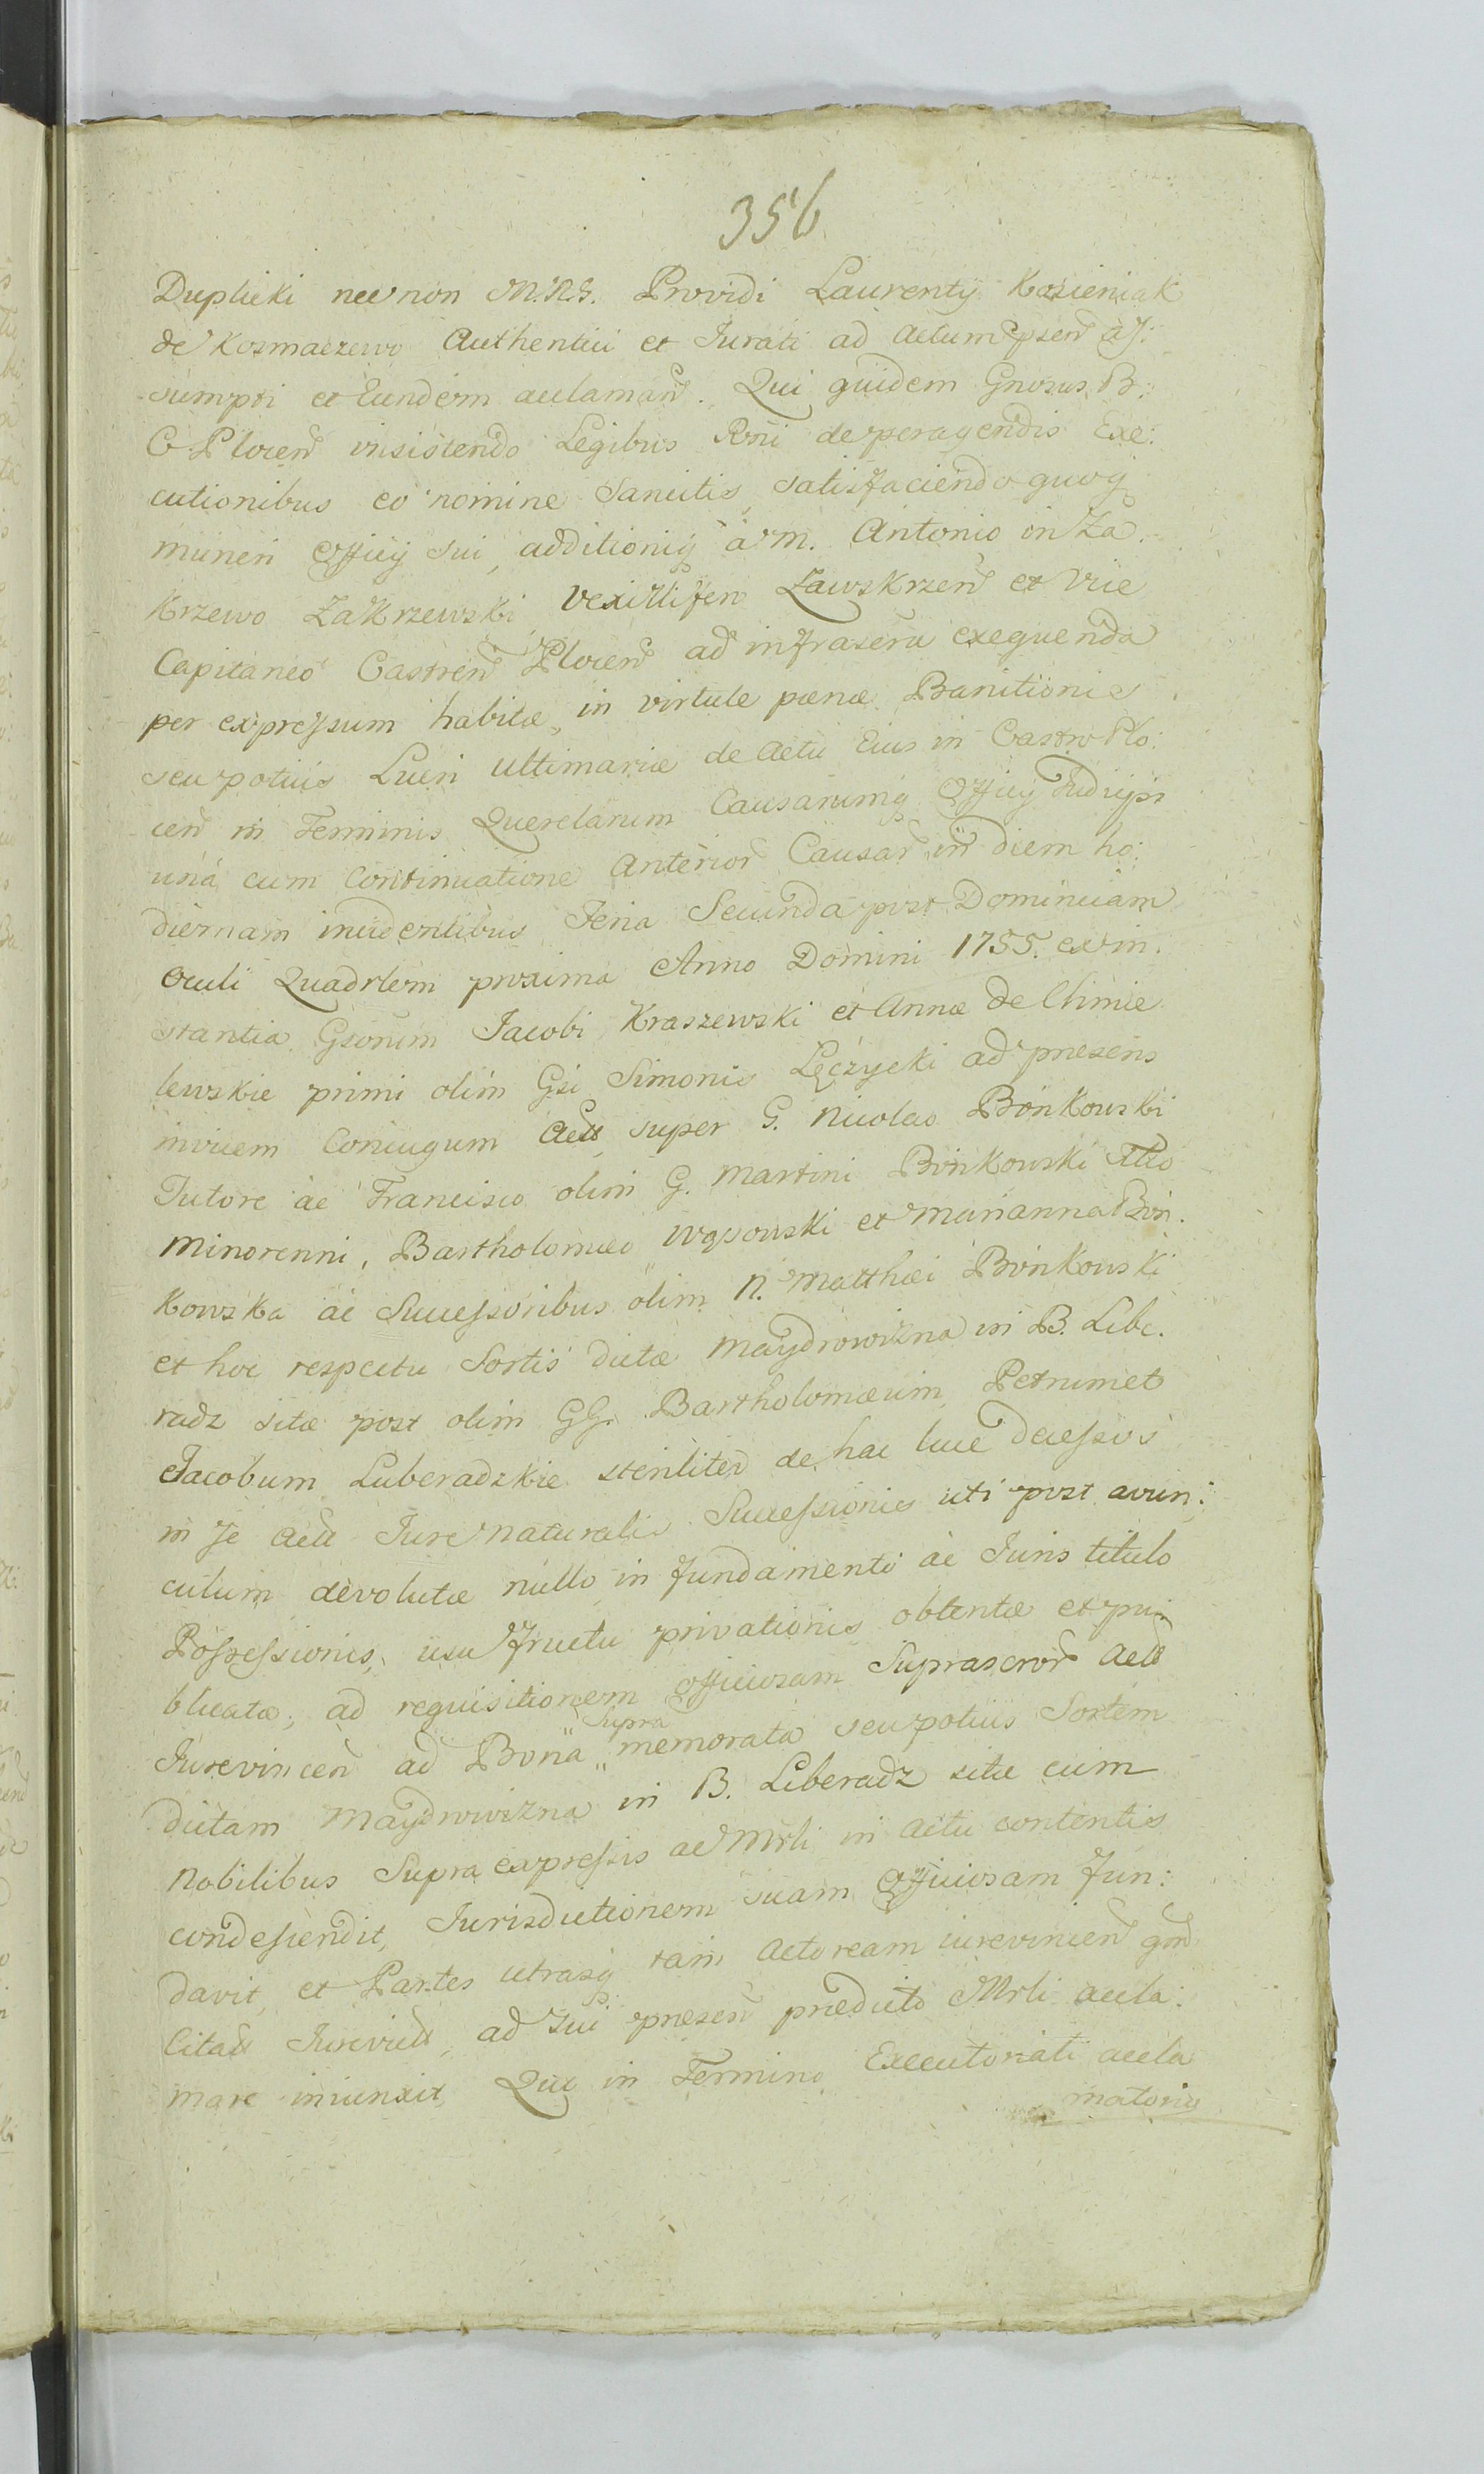 356
Duplicki nec non M.R.G. Providi Laurentÿ Kozieniak
de Kosmaczewo Authentici et Jurati ad Actum psen as:
sumpti et Eundem acclaman. Qui quidem Gnosus B:
C Plocen insistendo Legibus Rni de peragendis Exe:
cutionibus eo nomine Sancitis, satisfaciendo quoq
muneri Officij sui, additioniq à M. Antonio in Za.
krzewo Zakrzewski Vexillifero Zawskrzen et Vice
Capitaneo Castren Plocen ad infrascru exequenda
per expressum habitæ, in virtute pœnæ Banitionis
seu potius Lucri ultimariæ de Actu Eius in Castro Plo:
cen in Terminis Querelarum Causarumq Officij Judicÿs
unà cum Continuatione Anterior Causar in diem ho:
diernam incidentibus Feria Secunda post Dominicam
Oculi Quadrlem proxima Anno Domini 1755. ex in.
stantia Gsorum Jacobi Kraszewski et Annæ de Chmie
lewskie primi olim Gsi Simonis Łęczycki ad præsens
invicem Coniugum Act super G. Nicolao Bońkowski
Tutore ac Francisco olim G. Martini Bońkowski Flio
Minorenni, Bartholomæo Wąsowski et Marianna Boń.
kowska ac Successoribus olim N. Matthæi Bońkowski
et hoc respectu Sortis dictæ Maydrowizna in B. Libe.
radz sitæ post olim GG. Bartholomæum, Petrum et
Jacobum Luberadzkie steriliter de hac luce decessos
in se Act Jure naturalis Successionis uti post avun:
culum devolutæ nullo in fundamento ac Juris titulo
Possessionis, usu fructu privationis obtentæ et pu:
blicatæ; ad requisitionem officiosam Suprascror Act
Jurevincen ad Bona " Supra memorata seu potius Sortem
dictam Maydrowizna in B. Liberadz sitæ cum
Nobilibus Supra expressis ac Mrli in Actu contentis
condescendit, Jurisdictionem suam Officiosam fun:
davit, et Partes utrasq tam Actoream iurevincen qm
Citatt Jurevict, ad sui præsen prædicto Mrli accla:
mare iniunxit, Quæ in Termino Executoriali accla
matoriæ